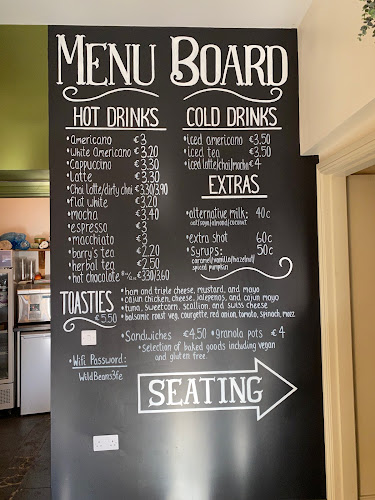 MENU BOARD
HOT DRINKS
• Americano €3
• White Americano €3.20
• Cappuccino €3.30
• Latte €3.30
• Chai latte/dirty chai €3.30/3.90
• flat white €3.20
• mocha €3.40
• espresso €3
• macchiato €3
• barry's tea €2.20
• herbal tea €2.50
• hot chocolate €3.30/3.60
COLD DRINKS
• iced americano €3.50
• iced tea €3.50
• iced latte/chai/mocha €4
EXTRAS
• alternative milk: 40c
oat/soya/almond/coconut
• extra shot 60c
• Syrups: 50c
caramel/vanilla/hazelnut/
spiced pumpkin
TOASTIES
€5.50
• ham and triple cheese, mustard, and mayo
• cajun chicken, cheese, jalepenos, and cajun mayo
• tuna, sweetcorn, scallion, and swiss cheese
• balsamic roast veg, courgette, red onion, tomato, spinach, mozz.
• Sandwiches €4,50 • granola pots €4
• Selection of baked goods including vegan
and gluten free
• Wifi Password:
WildBeans3fe
SEATING